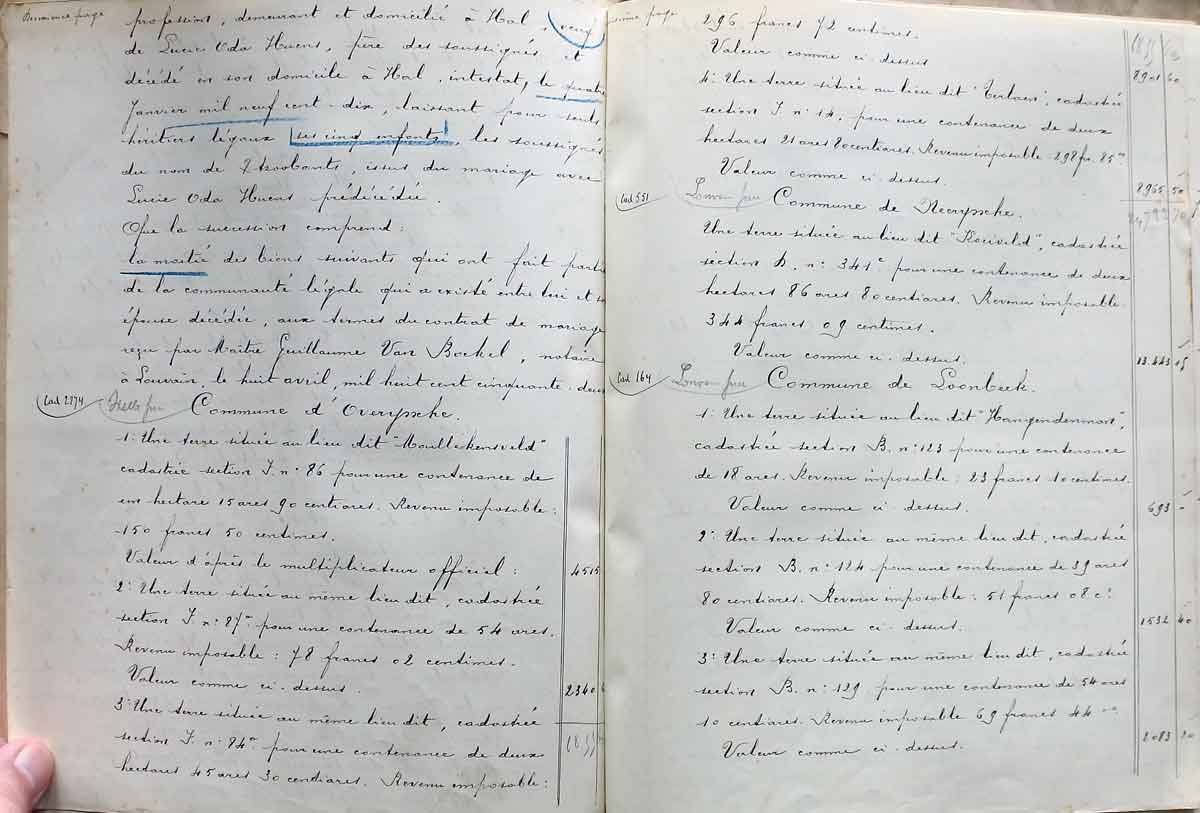 page
profession, demeurant et domicilié à Hal, veuf
de Lucie Oda Huens, père des soussignés et
décédé en son domicile à Hal, intestat, le quatre
Janvier mil neuf cent dix, laissant pour seuls
héritiers légaux ses cinq enfants, les soussignés
du nom de issus du mariage avec
Lucie Oda Huens prédécédée.
Que la succession comprend:
la moitié des biens suivants qui ont fait partie
de la communauté légale qui a existé entre lui et son
épouse décédée, aux termes du contrat de mariage
reçu par Maître Guillaume Van Bockel, notaire
à Louvain, le huit avril, mil huit cent cinquante-deux
Cad 2274 Commune d'Overyssche.
1° Une terre située au lieu dit "Moullekensveld"
cadastrée section J. n° 86 pour une contenance de
un hectare 15 ares 90 centiares. Revenu imposable:
150 francs 50 centimes.
Valeur d'après le multiplicateur officiel: 4515
2° Une terre située au même lieu dit, cadastrée
section J. n° 87 pour une contenance de 54 ares.
Revenu imposable: 78 francs 02 centimes.
Valeur comme ci-dessus. 2340
3° Une terre située au même lieu dit, cadastrée
section J. n° 84 pour une contenance de deux
hectares 45 ares 30 centiares. Revenu imposable:
page
296 francs 72 centimes.
Valeur comme ci-dessus 8901 60
4° Une terre située au lieu dit "Terlaen", cadastrée
section I. n° 14. pour une contenance de deux
hectares 21 ares 80 centiares. Revenu imposable 298 fr. 85
Valeur comme ci-dessus. 8965 50
Cad 551 Louvain Commune de Neeryssche.
Une terre située au lieu dit "Rouveld", cadastrée
section D. n° 341c pour une contenance de deux
hectares 86 ares 80 centiares. Revenu imposable
344 francs 09 centimes.
Valeur comme ci-dessus. 13.443 15
Cad 164 Louvain Commune de Loonbeek.
1° Une terre située au lieu dit "Hangendenmort",
cadastrée section B. n° 123 pour une contenance
de 18 ares. Revenu imposable: 23 francs 10 centimes.
Valeur comme ci-dessus. 693 -
2° Une terre située au même lieu dit, cadastrée
section B. n° 124 pour une contenance de 39 ares
80 centiares. Revenu imposable: 51 francs 08 c.
Valeur comme ci-dessus. 1532 40
3° Une terre située au même lieu dit, cadastrée
section B. n° 129 pour une contenance de 54 ares
10 centiares. Revenu imposable 69 francs 44
Valeur comme ci-dessus. 2083 20